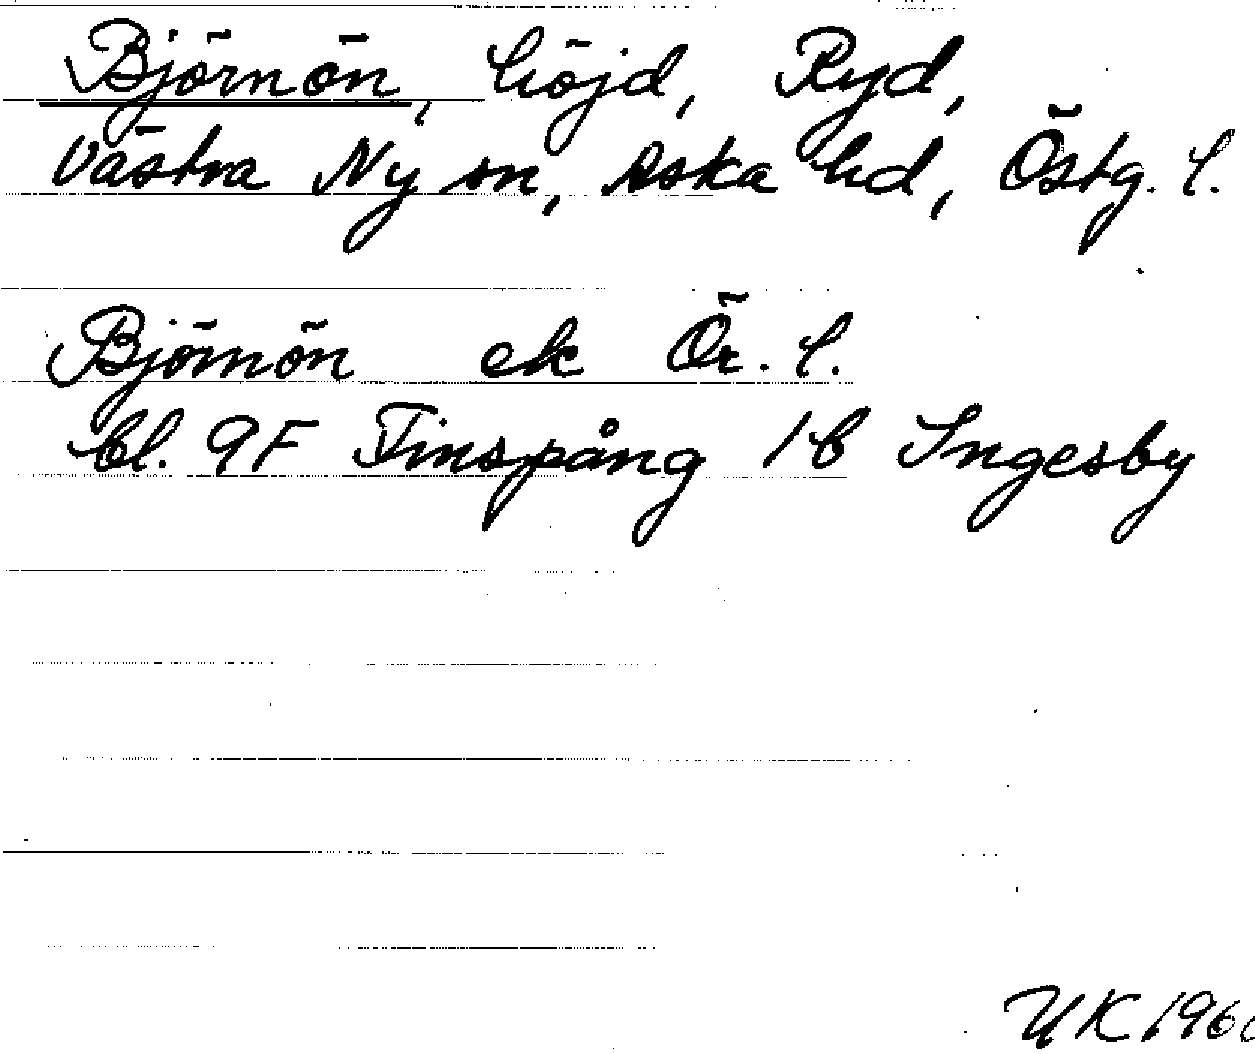 Björnön, höjd, Ryd,
Västra Ny sn, Aska hd, Östg. l.
Björnön ek Ör. l.
bl. 9F Finspång 1b Ingesby
UK 1960